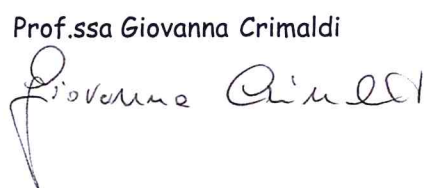 Prof.ssa Giovanna Crimaldi
Giovanna Crimaldi